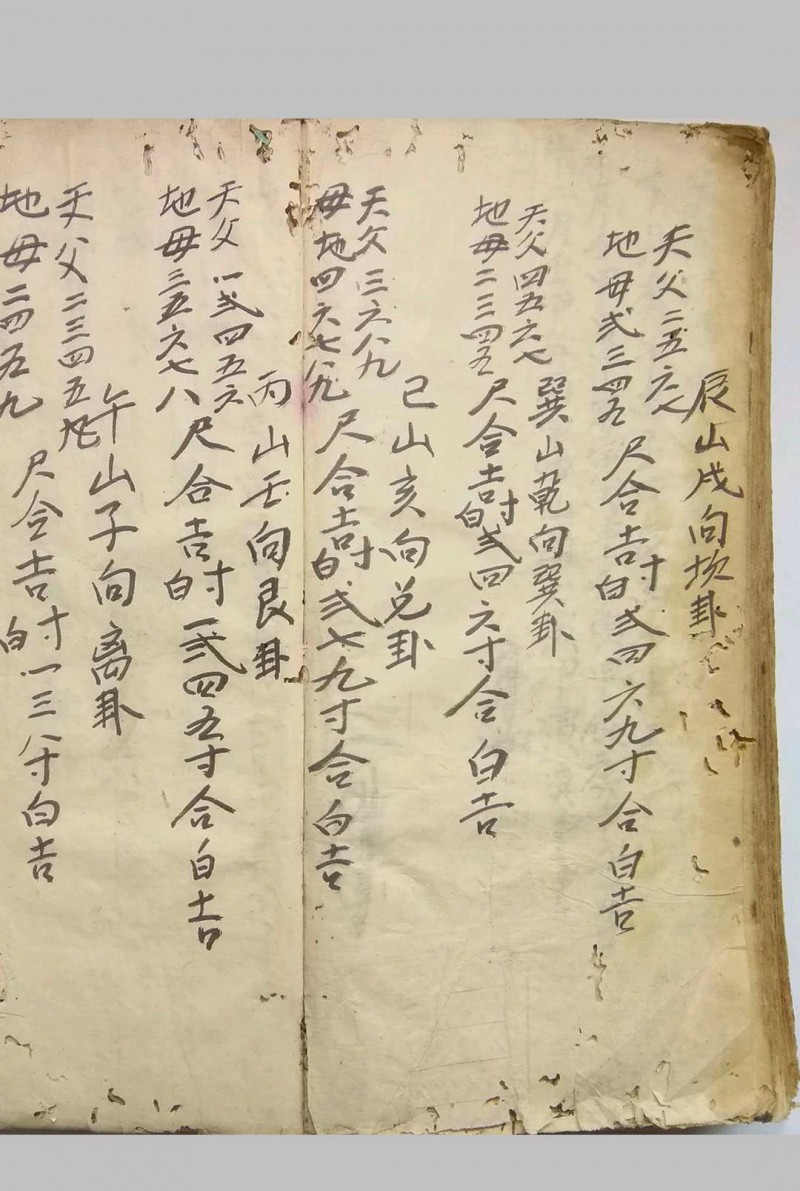 辰山戌向坎卦
天父二五六七
地母弍三四五尺合吉寸白弍四六九寸合白吉
巽山乾向巽卦
天父四五六七
地母二三四五尺合吉寸白弍四六寸合白吉
巳山亥向兑卦
天父三六八九
母地四六七八九尺合吉寸白弍七九寸合白吉
丙山壬向艮卦
天父一弍四五六
地母三五六七八尺合吉寸白一弍四五寸合白吉
午山子向离卦
天父二三四五九
地母二四五九尺合吉寸白一三八寸白吉